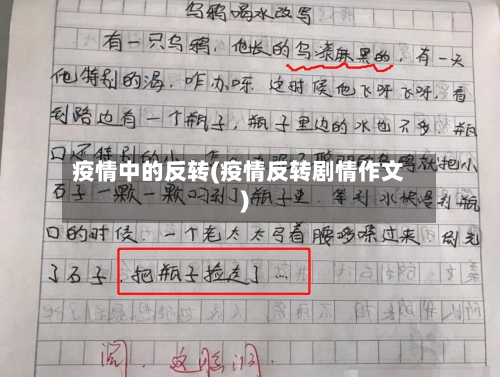 乌鸦喝水改写
有一只乌鸦，他长的乌漆麻黑的，有一天
他特别的渴，咋办呀，这时候他飞呀飞呀，看
到路边有一个瓶子，瓶子里边的水也不多，瓶
口还特别的小
疫情中的反转(疫情反转剧情作文
)
石子一颗一颗叼到了瓶子里，等到水快漫到瓶
口的时候，一个老太太弓着腰哆嗦过来，倒光
了石子，把瓶子捡走了…